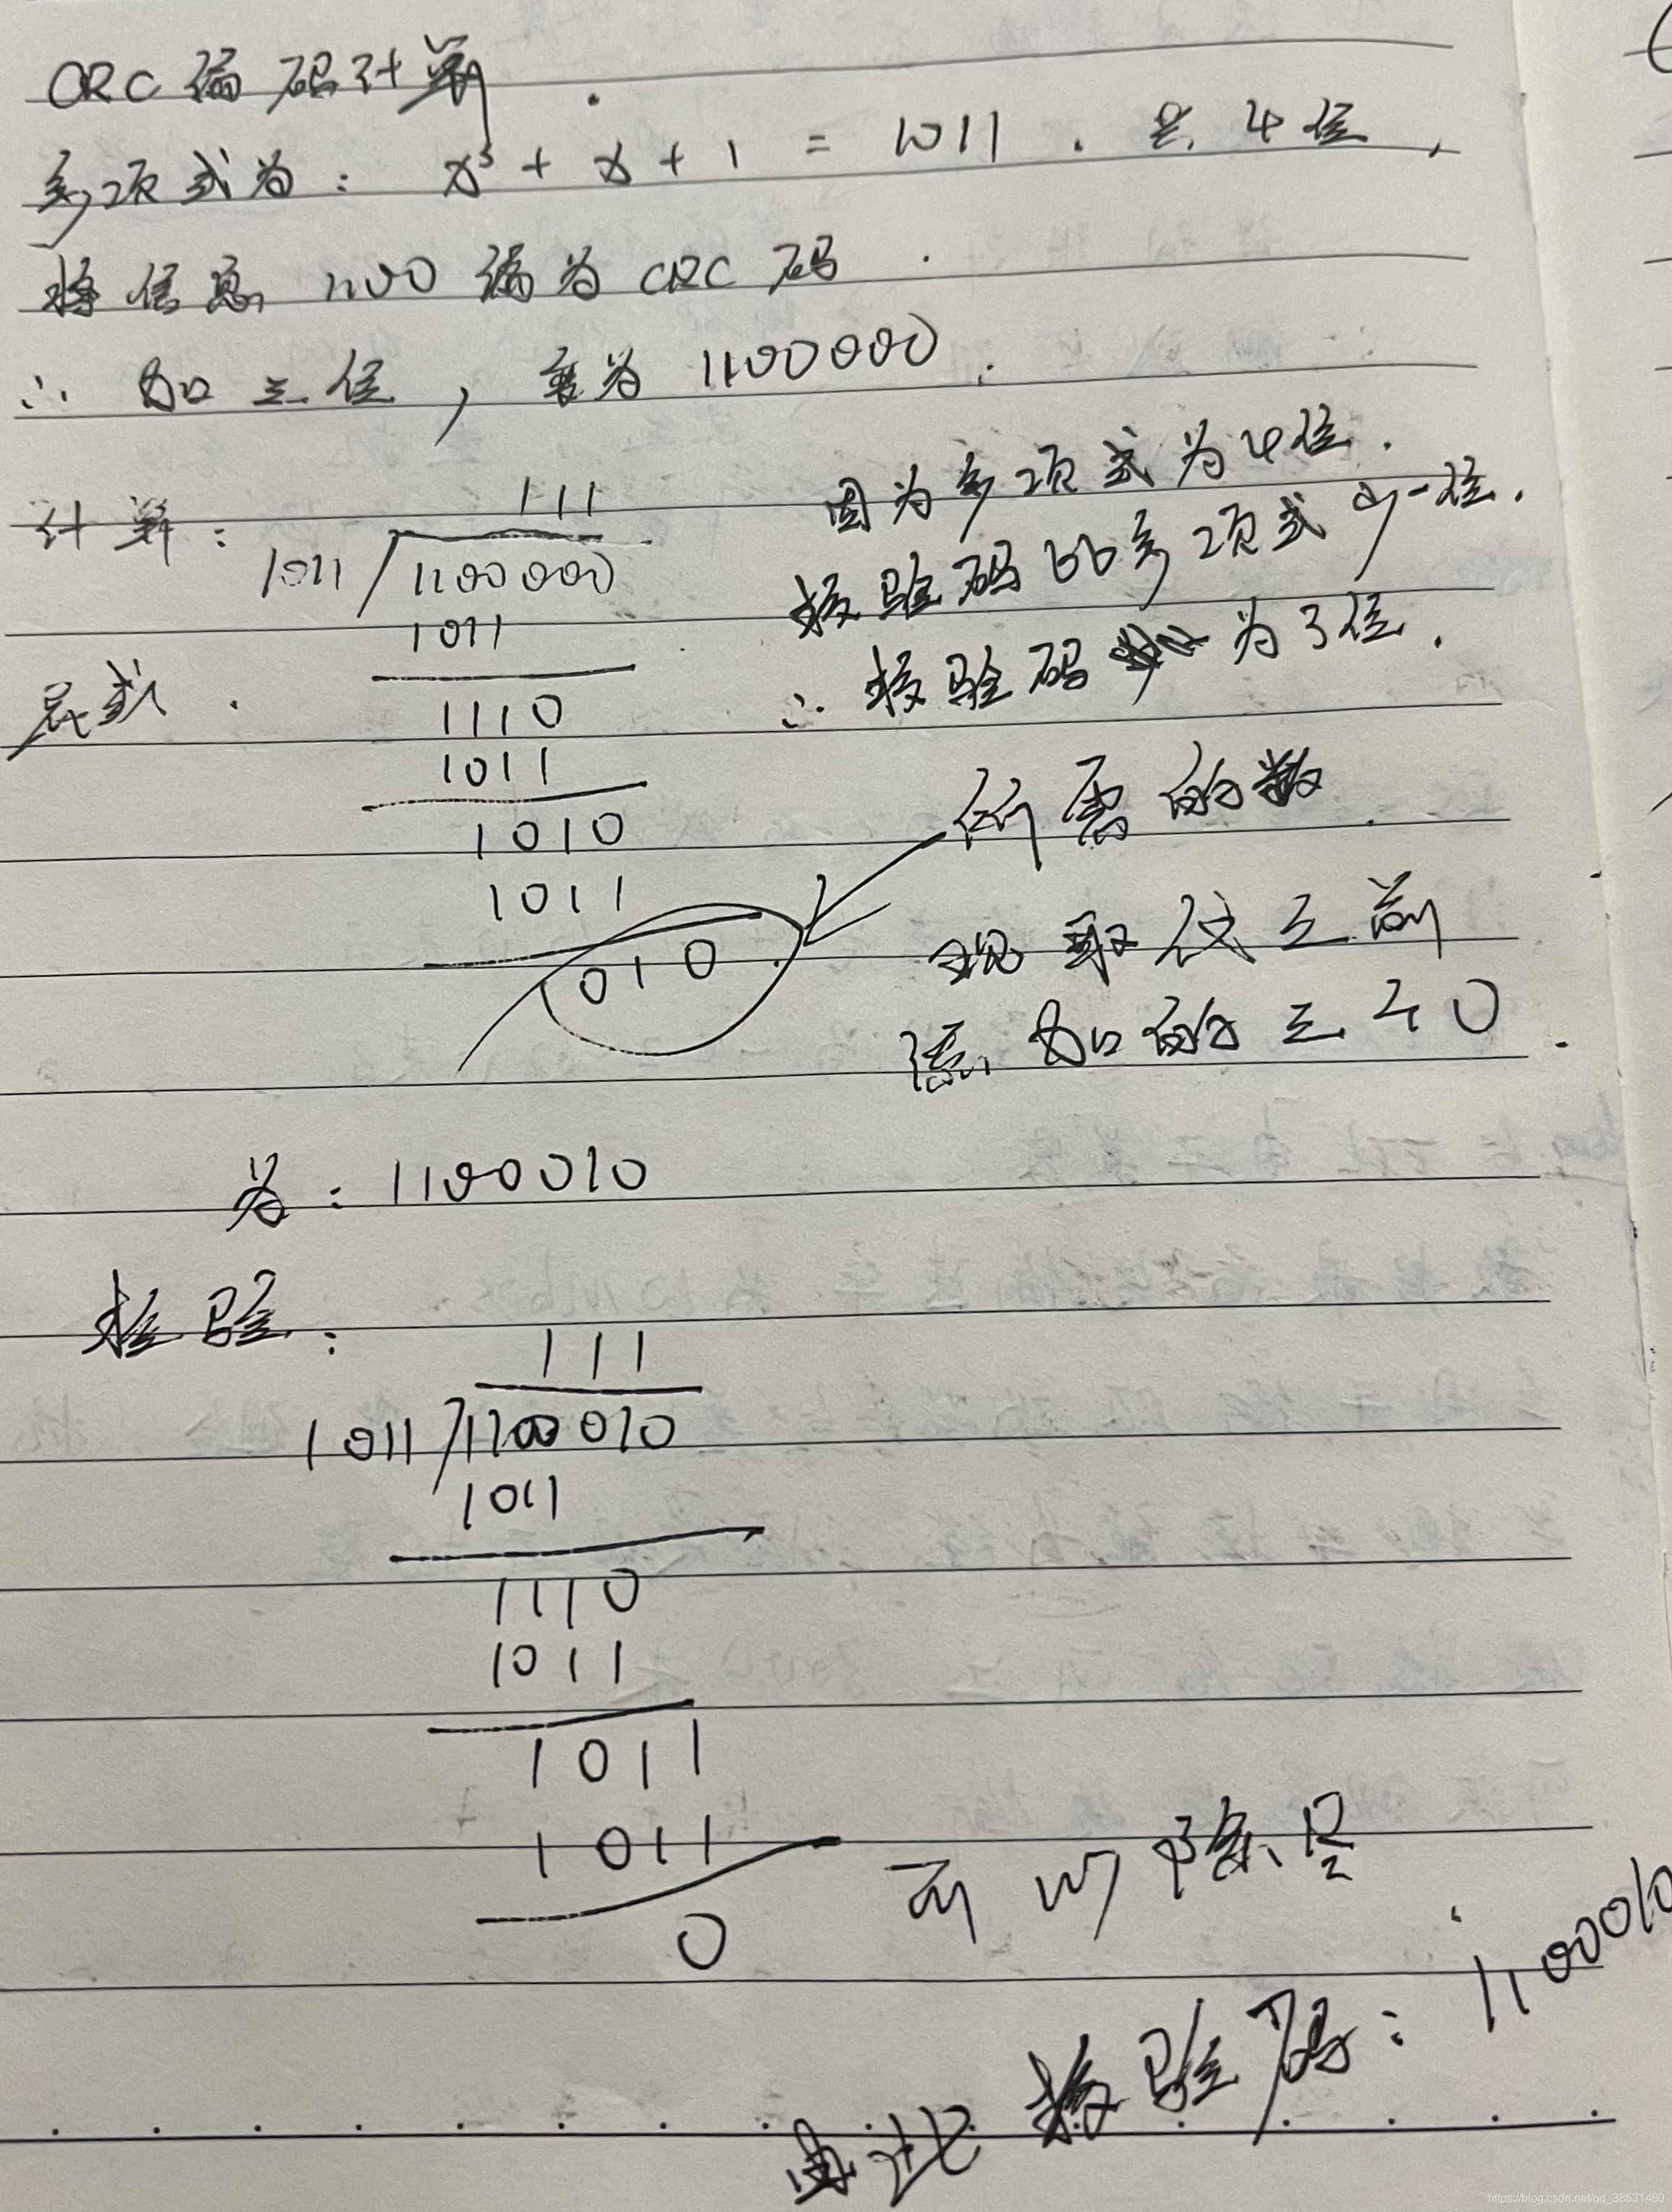 CRC编码计算.
多项式为: x³ + x + 1 = 1011 . 是 4位,
将信息 1100 编为 CRC 码.
∴ 加三位, 变为 1100000.
计算:
111
1011 / 1100000
1011
1110
1011
1010
1011
010
因为多项式为4位.
校验码比多项式少一位.
∴ 校验码 为3位.
所需的数
现取代之前
添加的三个0.
为: 1100010
检验:
111
1011 / 1100010
1011
1110
1011
1011
1011
0
可以除尽
由此校验码: 1100010
https://blog.csdn.net/qq_38531460